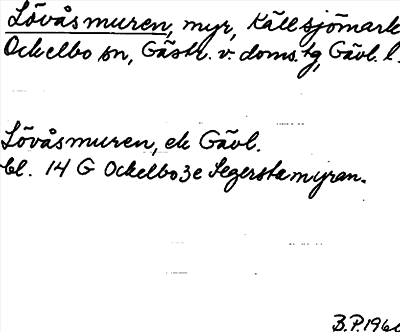 Lövåsmuren, myr, Källsjömark
Ockelbo sn, Gästr. v. doms.hg, Gävl. l.
Lövåsmuren, ek Gävl.
bl. 14 G Ockelbo 3e Segerstamyran.
B.P.196